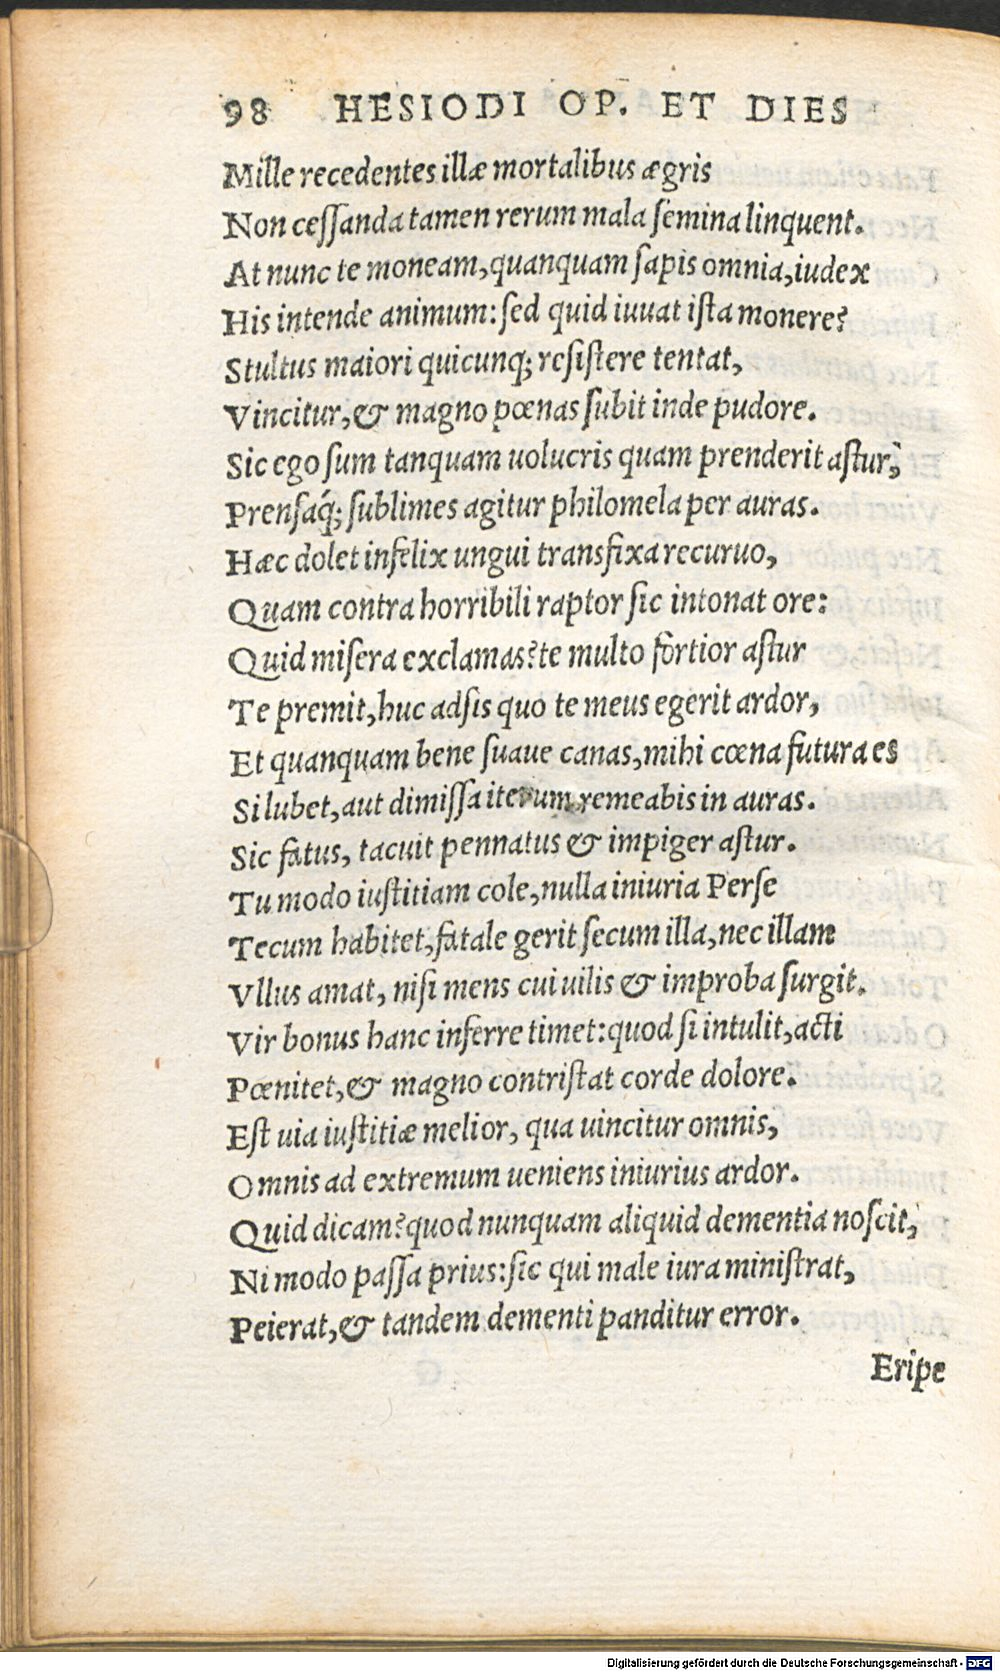 98 HESIODI OP. ET DIES
Mille recedentes illæ mortalibus ægris
Non ceſſanda tamen rerum mala ſemina linquent.
At nunc te moneam, quanquam ſapis omnia, iudex
His intende animum: ſed quid iuuat iſta monere?
Stultus maiori quicunq; reſiſtere tentat,
Vincitur, & magno pœnas ſubit inde pudore.
Sic ego ſum tanquam uolucris quam prenderit aſtur,
Prenſaq́; ſublimes agitur philomela per auras.
Hæc dolet infelix ungui transfixa recuruo,
Quam contra horribili raptor ſic intonat ore:
Quid miſera exclamas? te multo fortior aſtur
Te premit, huc adſis quo te meus egerit ardor,
Et quanquam bene ſuaue canas, mihi cœna futura es
Si lubet, aut dimiſſa iterum remeabis in auras.
Sic fatus, tacuit pennatus & impiger aſtur.
Tu modo iuſtitiam cole, nulla iniuria Perſe
Tecum habitet, fatale gerit ſecum illa, nec illam
Vllus amat, niſi mens cui uilis & improba ſurgit.
Vir bonus hanc inferre timet: quod ſi intulit, acti
Pœnitet, & magno contriſtat corde dolore.
Eſt uia iuſtitiæ melior, qua uincitur omnis,
Omnis ad extremum ueniens iniurius ardor.
Quid dicam? quod nunquam aliquid dementia noſcit,
Ni modo paſſa prius: ſic qui male iura miniſtrat,
Peierat, & tandem dementi panditur error.
Eripe
Digitalisierung gefördert durch die Deutsche Forschungsgemeinschaft - DFG